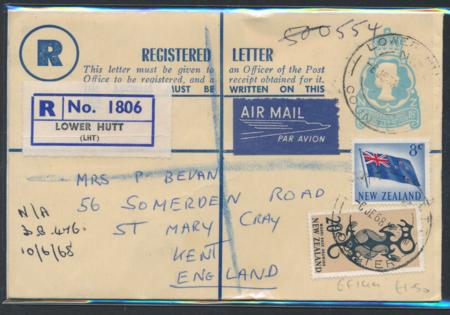 500554
R
REGISTERED LETTER
This letter must be given to an Officer of the Post
Office to be registered, and a receipt obtained for it.
MUST BE WRITTEN ON THIS
R No. 1806
LOWER HUTT
(LHT)
AIR MAIL
PAR AVION
LOWER
8c
NEW ZEALAND
MRS P. BEVAN
56 SOMERDEN ROAD
ST MARY CRAY
KENT
ENGLAND
N/A
10/6/68
JE 68
20c
NEW ZEALAND